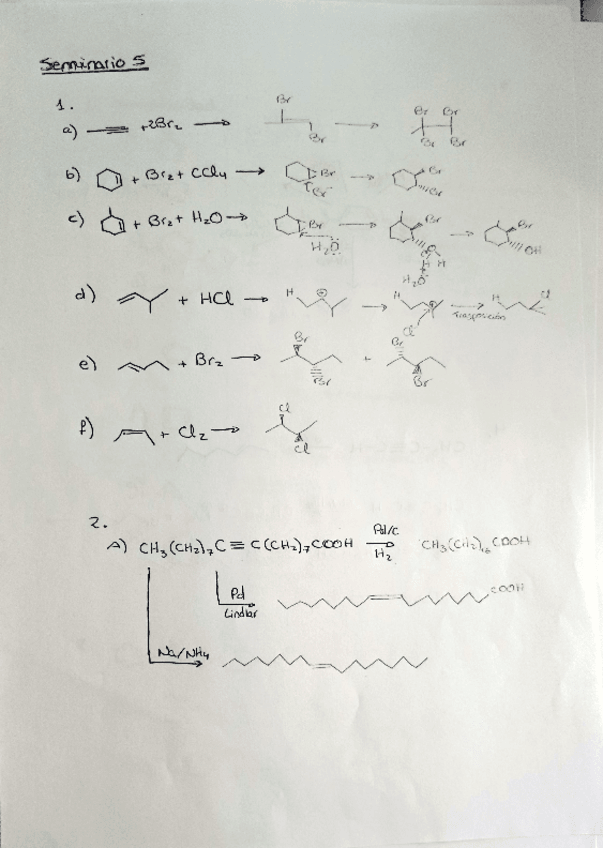 Seminario 5
1.
a) +2Br₂ → Br Br → Br Br Br Br
b) + Br₂ + CCl₄ → Br Br⁻ → Br Br
c) + Br₂ + H₂O → Br H₂Ö → Br O H H H₂O → Br OH
d) + HCl → H ⊕ → H ⊕ Cl⁻ → Trasposición H Cl
e) + Br₂ → Br Br + Br Br
f) + Cl₂ → Cl Cl
2.
A) CH₃(CH₂)₇C≡C(CH₂)₇COOH Pd/C → H₂ CH₃(CH₂)₁₆COOH
Pd → Lindlar COOH
Na/NH₄ →